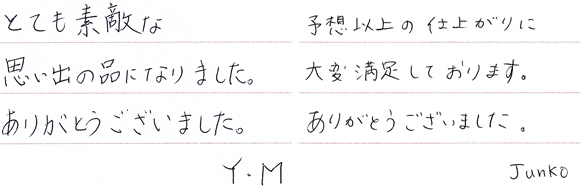 とても素敵な
思い出の品になりました。
ありがとうございました。
Y・M
予想以上の仕上がりに
大変満足しております。
ありがとうございました。
Junko